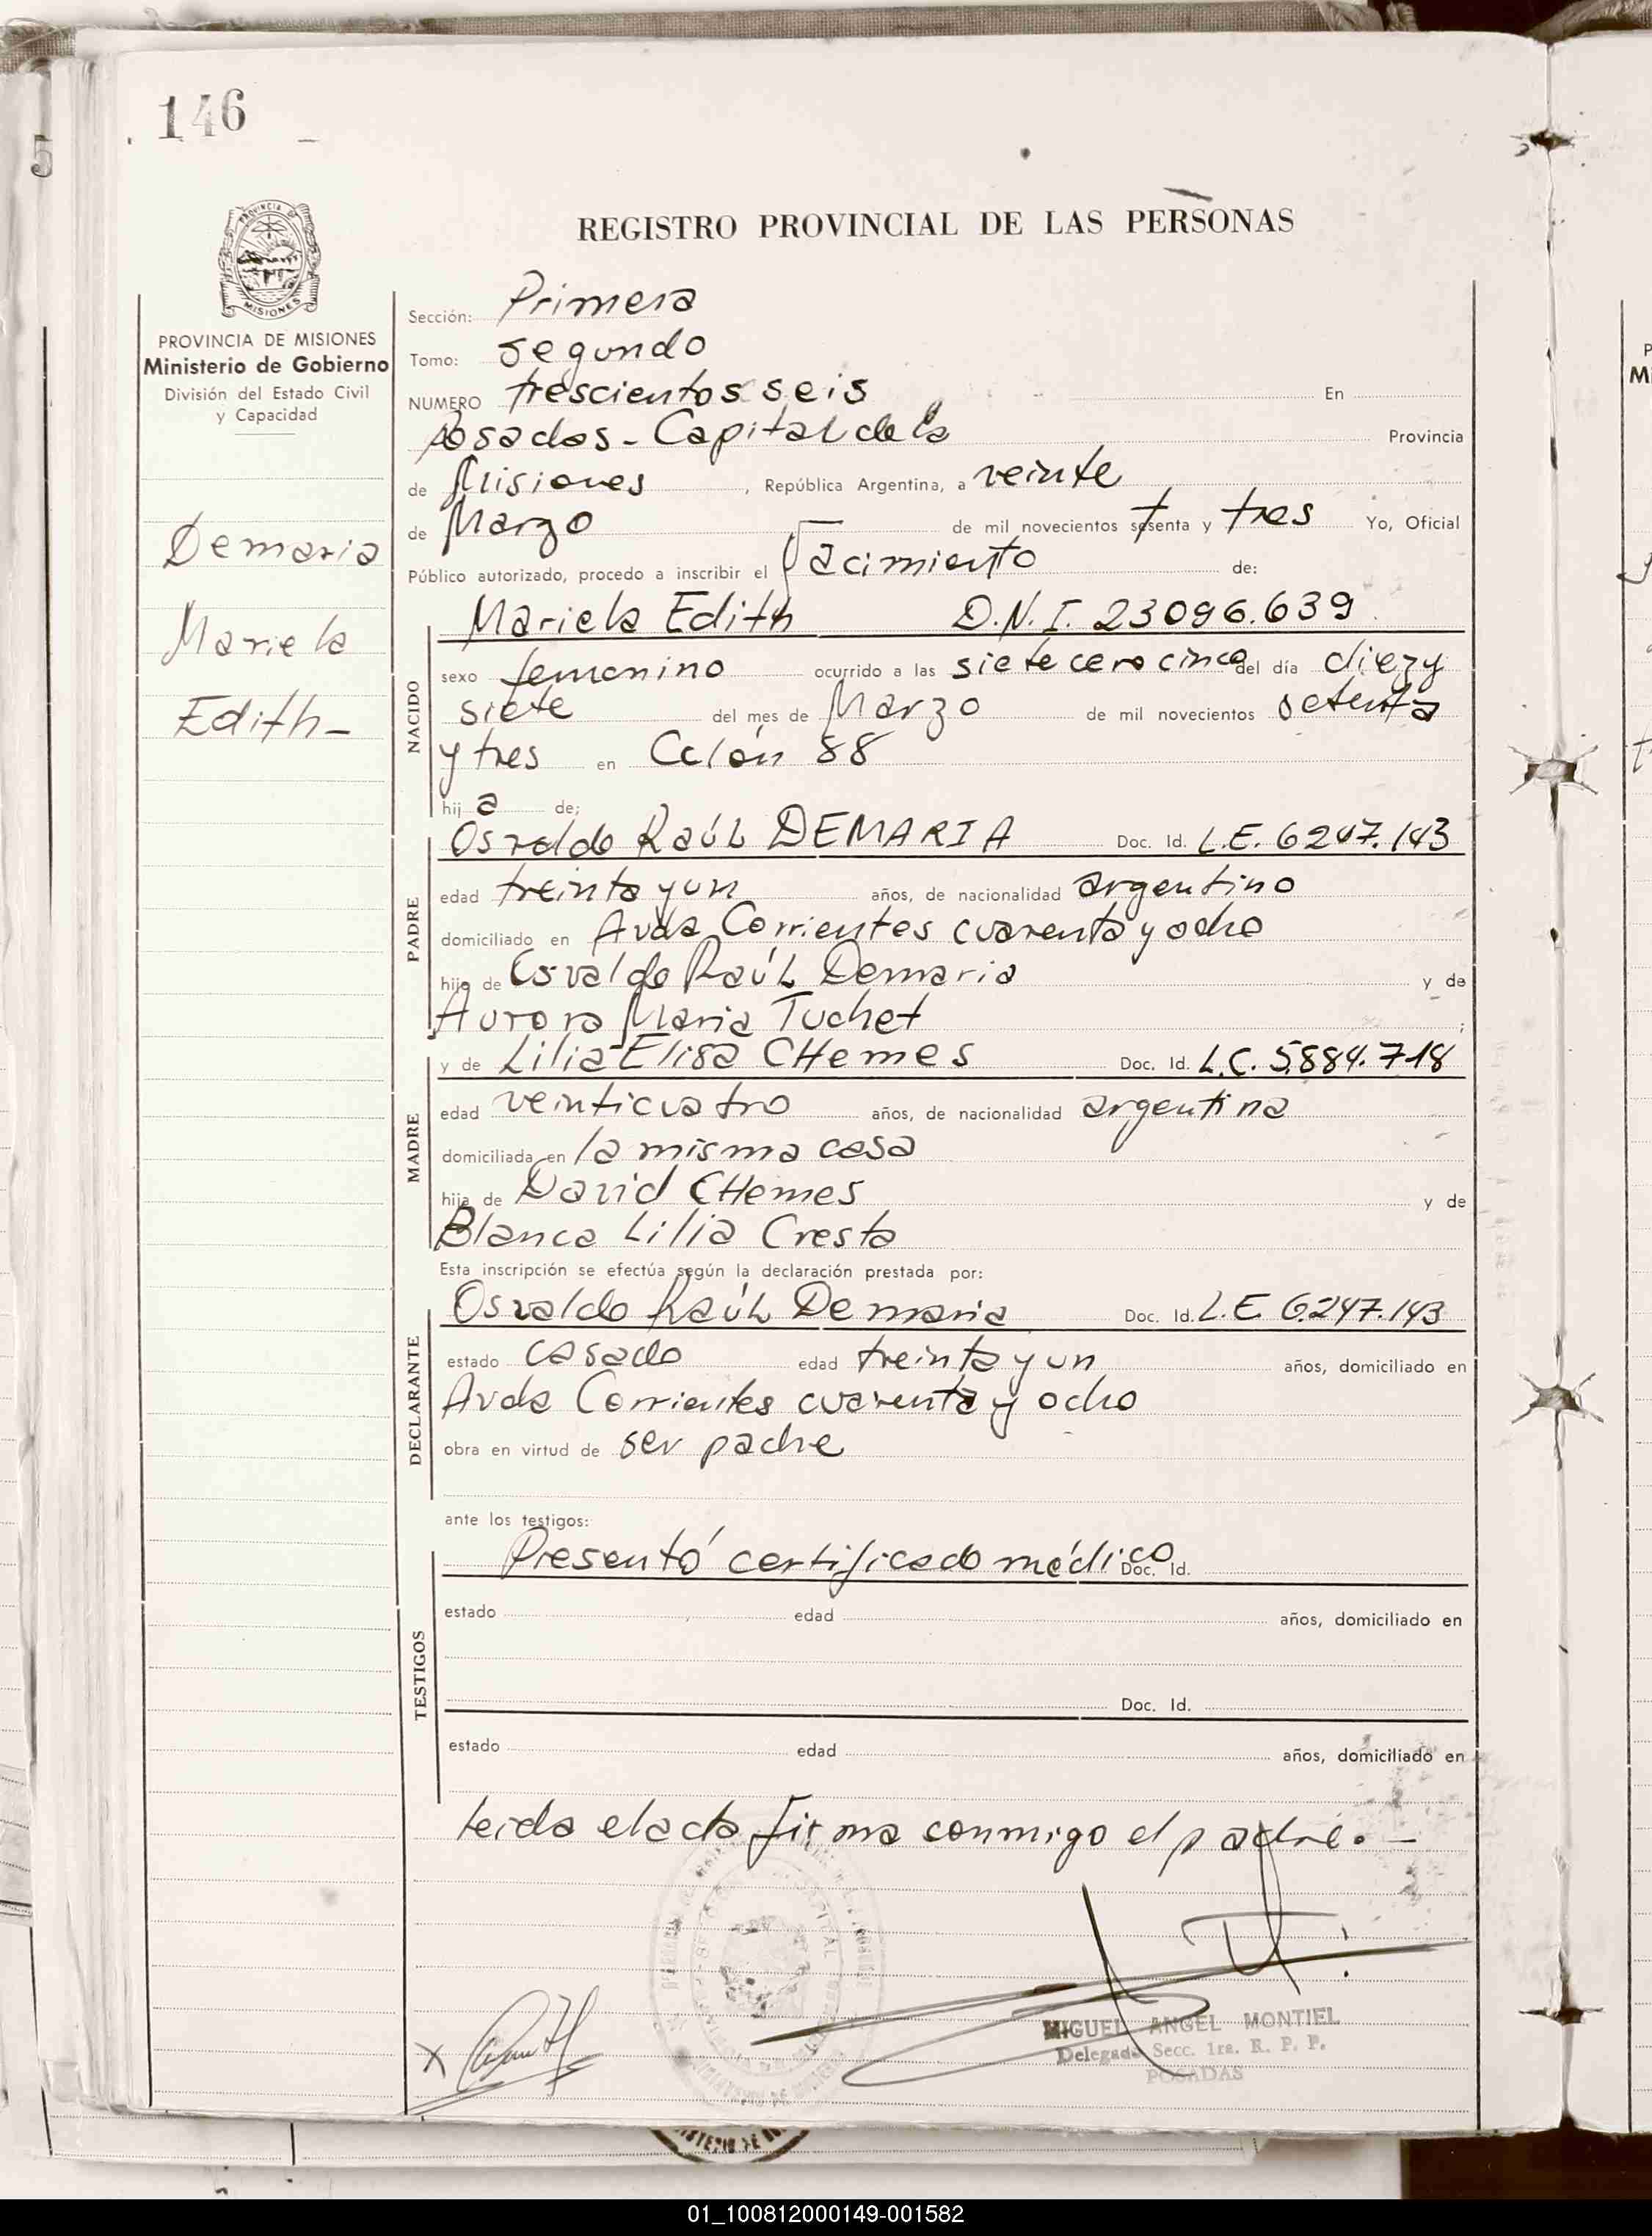 146
5
REGISTRO PROVINCIAL DE LAS PERSONAS
MISIONES
PROVINCIA DE MISIONES
Ministerio de Gobierno
División del Estado Civil
y Capacidad
Demaria
Mariela
Edith-
Sección: Primera
Tomo: segundo
NUMERO trescientos seis En
Posadas - Capital de la Provincia
de Misiones, República Argentina, a veinte
de Marzo de mil novecientos setenta y tres Yo, Oficial
Público autorizado, procedo a inscribir el Nacimiento de:
Mariela Edith D.N.I. 23096.639
NACIDO
sexo femenino ocurrido a las siete cero cinco del día diez y
siete del mes de Marzo de mil novecientos setenta
y tres en Colón 88
hij a de;
PADRE
Osvaldo Raúl DEMARIA Doc. Id. L.E. 6247.143
edad treinta y un años, de nacionalidad argentino
domiciliado en Avda Corrientes cuarenta y ocho
hijo de Osvaldo Raúl Demaria y de
Aurora Maria Tuchet;
MADRE
y de Lilia Elisa CHemes Doc. Id. L.C. 5.884.718
edad veinticuatro años, de nacionalidad argentina
domiciliada en la misma casa
hija de David CHemes y de
Blanca Lilia Cresta
Esta inscripción se efectúa según la declaración prestada por:
DECLARANTE
Osvaldo Raúl Demaria Doc. Id. L.E. 6247.143
estado casado edad treinta y un años, domiciliado en
Avda Corrientes cuarenta y ocho
obra en virtud de ser padre
ante los testigos:
TESTIGOS
Presentó certificado médico Doc. Id.
estado edad años, domiciliado en
Doc. Id.
estado edad años, domiciliado en
Leida el acta firma conmigo el padre. -
MIGUEL ANGEL MONTIEL
Delegado Secc. 1ra. R. P. P.
POSADAS
01_100812000149-001582